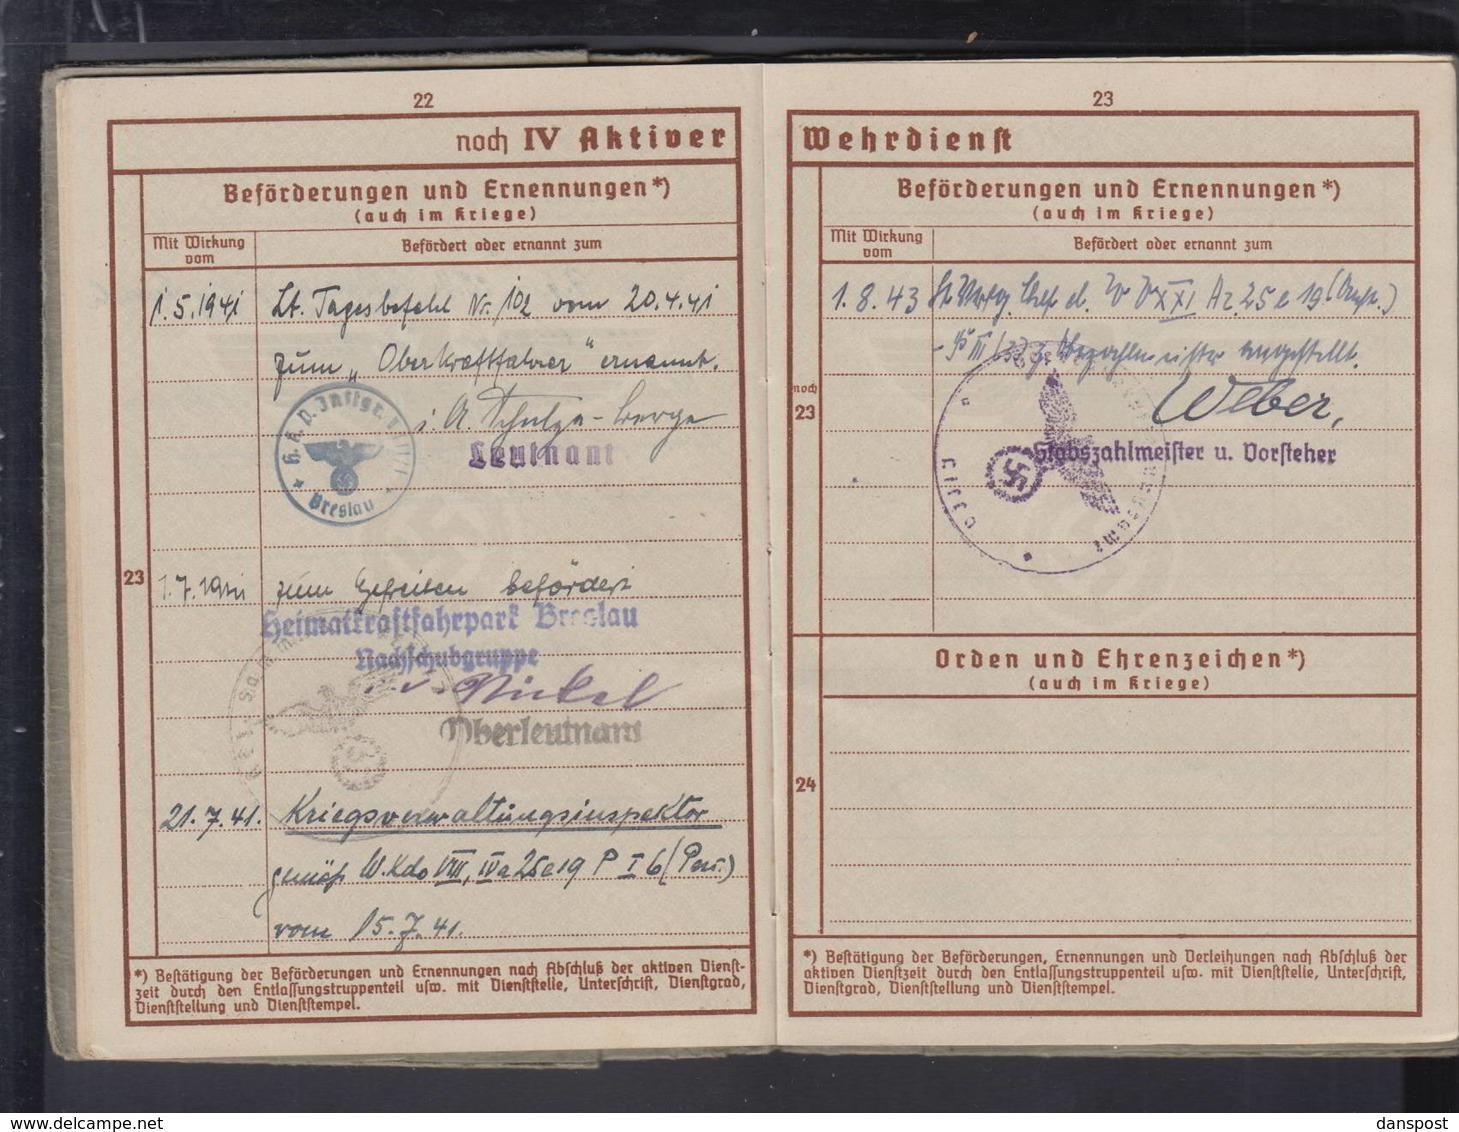 22
noch IV Aktiver
Beförderungen und Ernennungen*)
(auch im Kriege)
Mit Wirkung vom
Befördert oder ernannt zum
1.5.1941 Lt. Tagesbefehl Nr. 102 vom 20.4.41
zum „Oberkraftfahrer" ernannt.
i. A. Schulze-Berge
Leutnant
Breslau
23
1.7.1941 zum Gefreiten befördert
Heimatkraftfahrpark Breslau
Nachschubgruppe
Nickel
Oberleutnant
21.7.41. Kriegsverwaltungsinspektor
gemäß W.Kdo VIII, IVa 25e19 P I 6 (Pers.)
vom 15.7.41.
*) Bestätigung der Beförderungen und Ernennungen nach Abschluß der aktiven Dienst-
zeit durch den Entlassungstruppenteil usw. mit Dienststelle, Unterschrift, Dienstgrad,
Dienststellung und Dienststempel.
23
Wehrdienst
Beförderungen und Ernennungen*)
(auch im Kriege)
Mit Wirkung vom
Befördert oder ernannt zum
1.8.43 XXI Az. 25 e 19
angestellt.
noch
23
Weber,
Stabszahlmeister u. Vorsteher
Orden und Ehrenzeichen*)
(auch im Kriege)
24
*) Bestätigung der Beförderungen, Ernennungen und Verleihungen nach Abschluß der
aktiven Dienstzeit durch den Entlassungstruppenteil usw. mit Dienststelle, Unterschrift,
Dienstgrad, Dienststellung und Dienststempel.
danspost